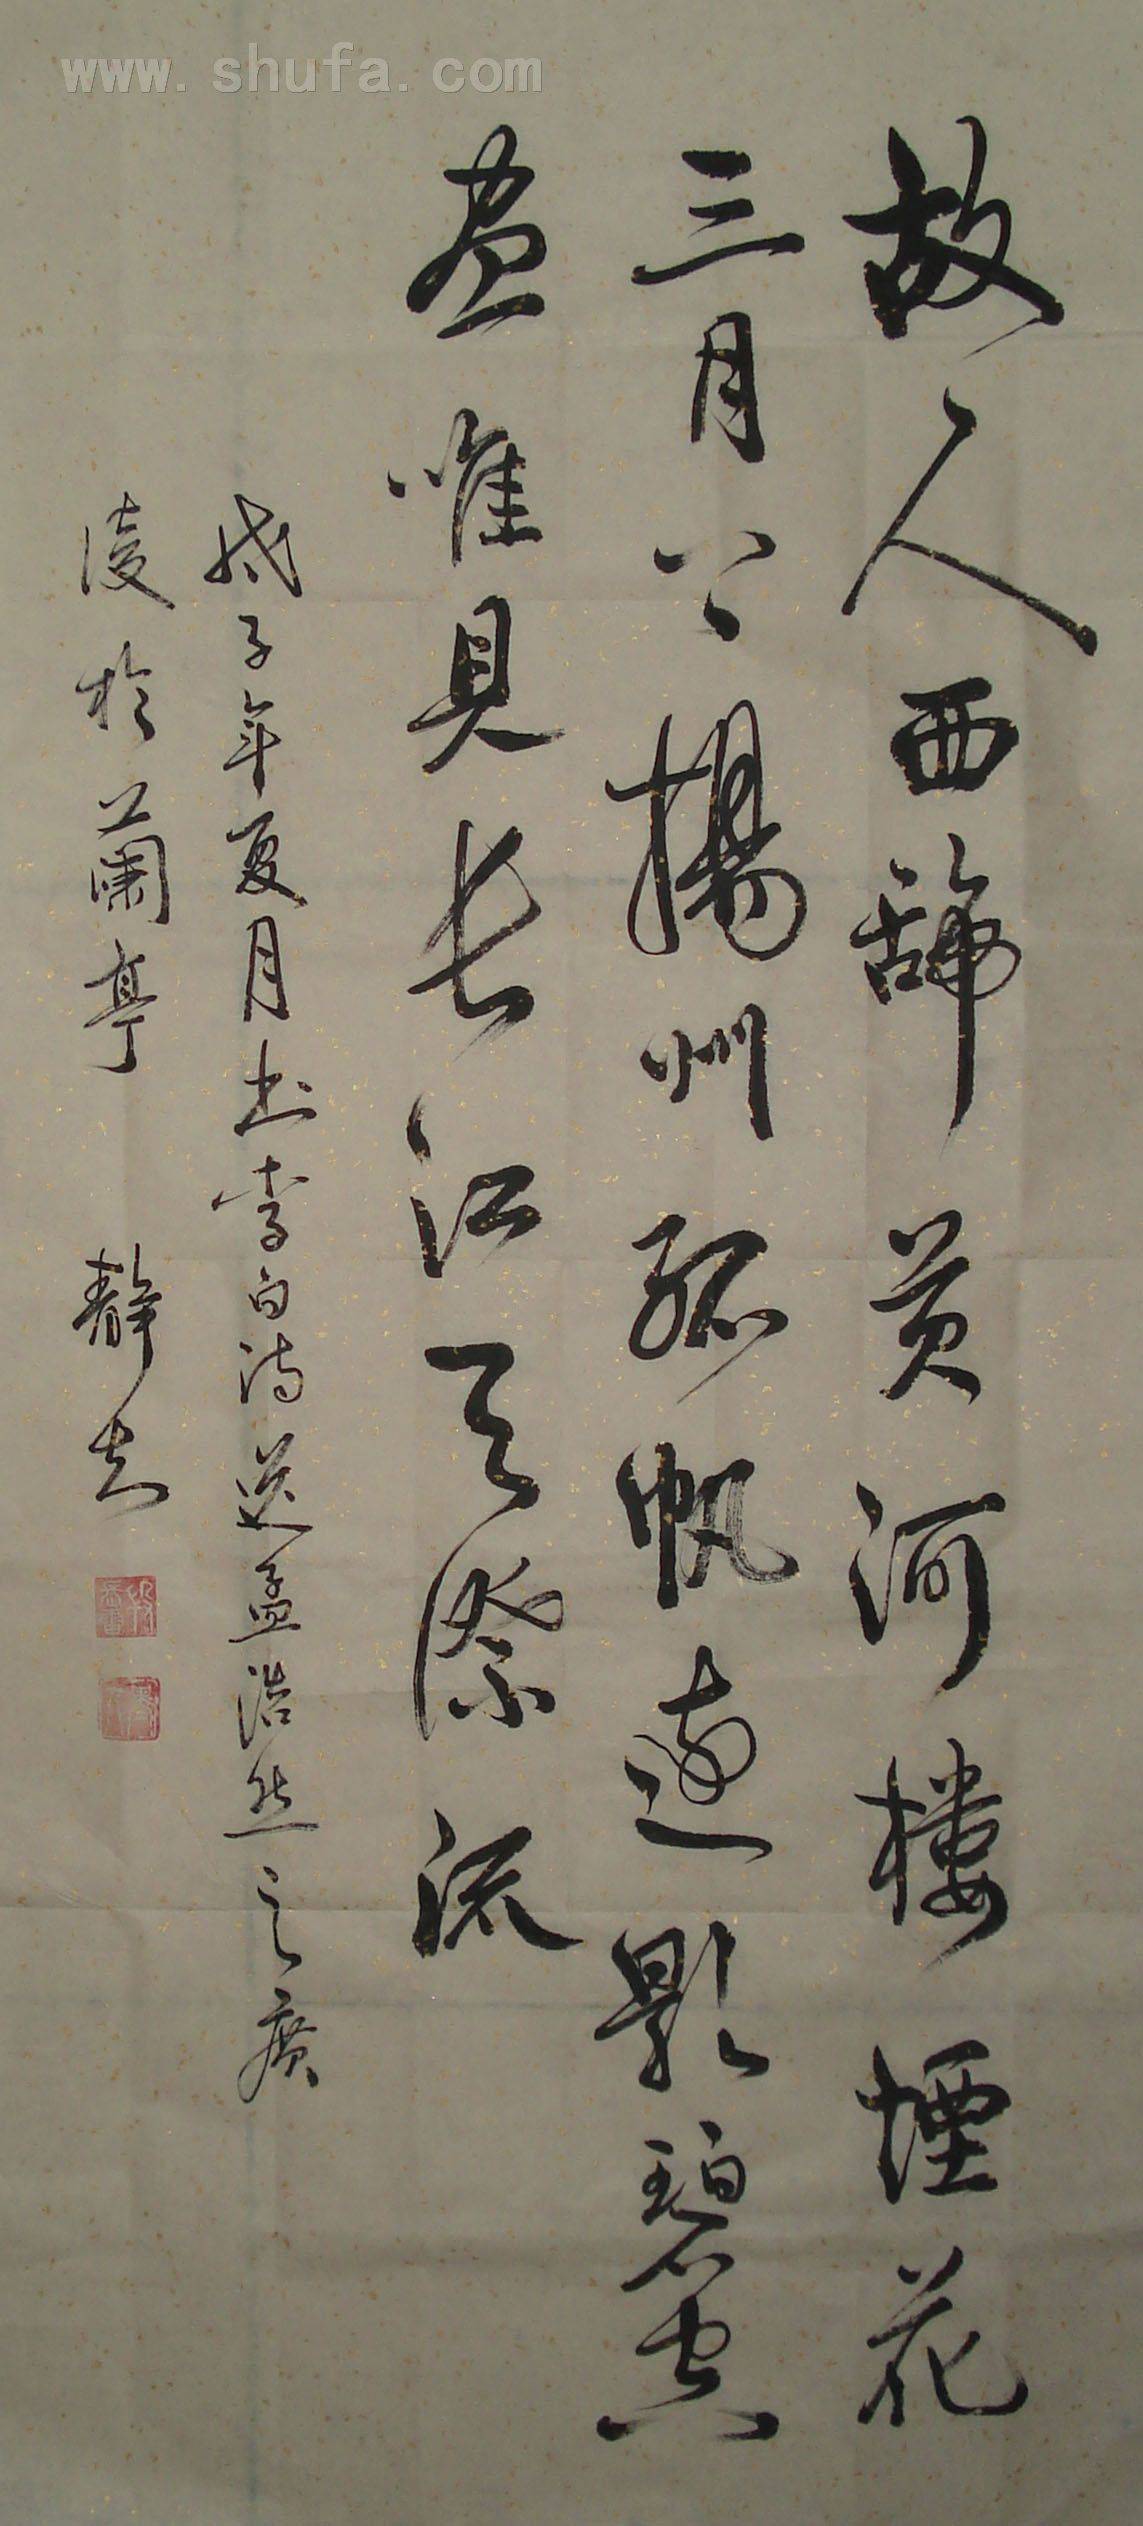 www.shufa.com
故人西辞黄河樓煙花
三月下揚州孤帆遠影碧空
盡唯見長江天際流
戊子年夏月书李白诗送孟浩然之廣
陵於蘭亭 靜